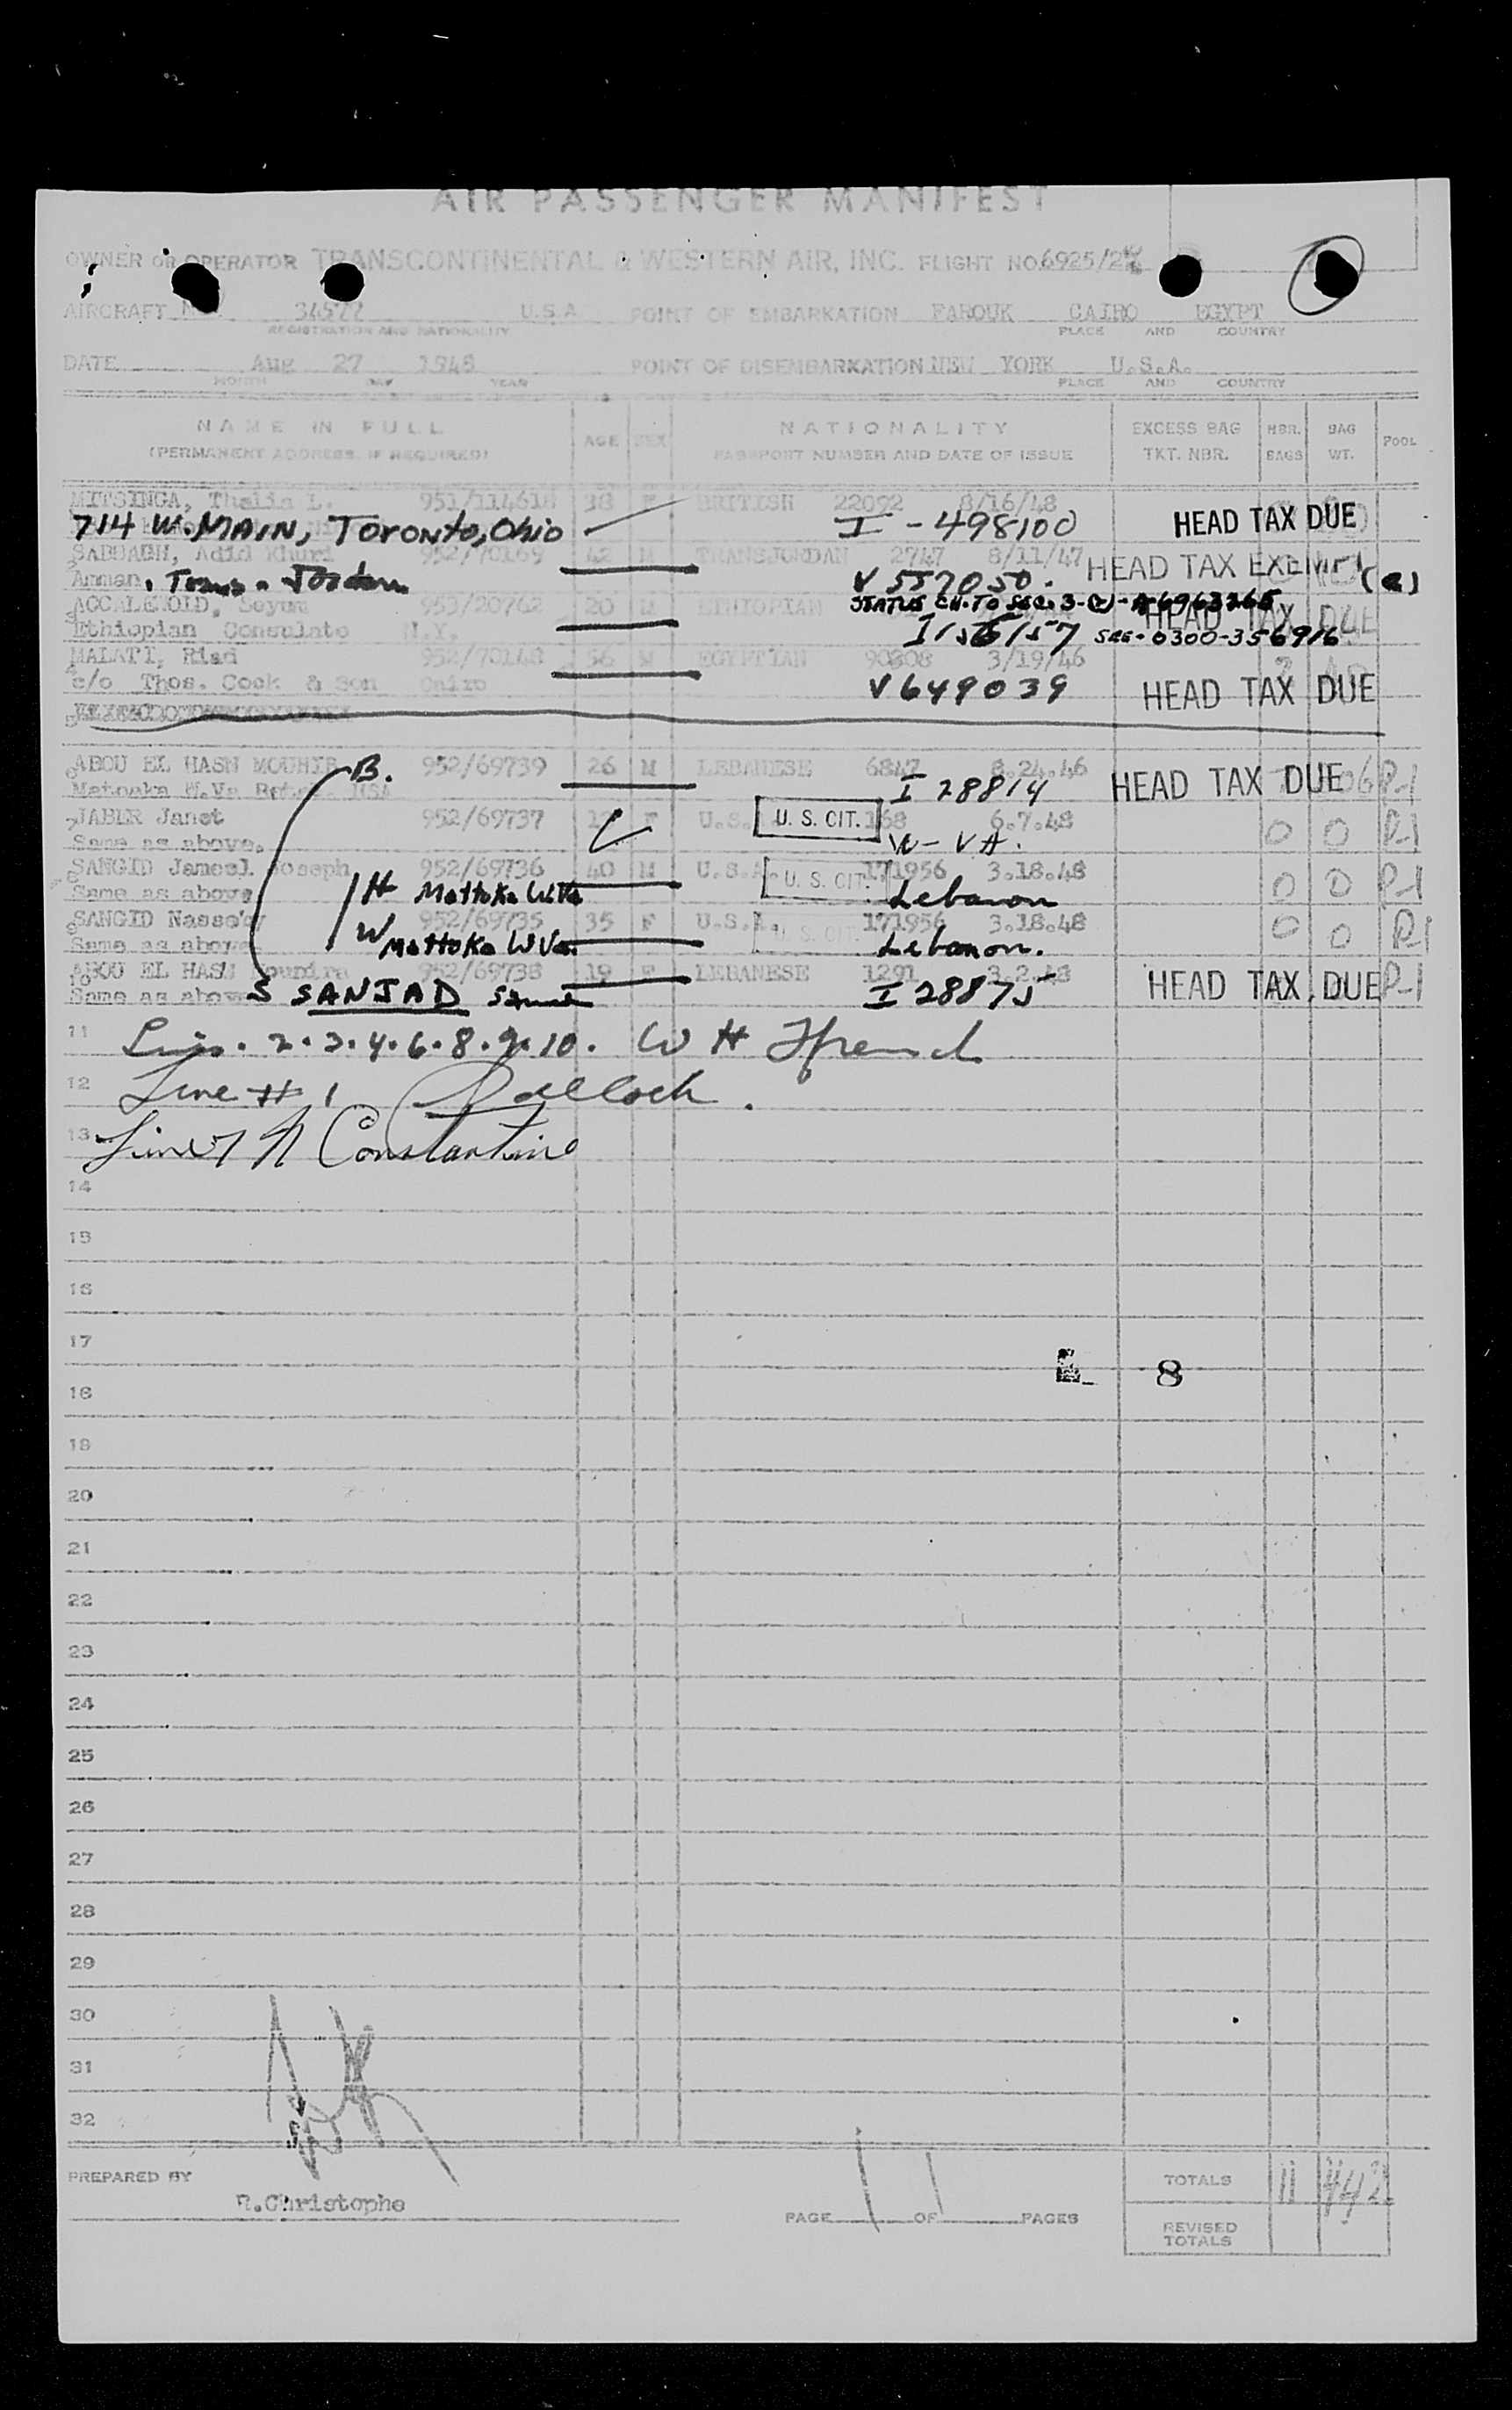 AIR PASSENGER MANIFEST
OWNER OR OPERATOR TRANSCONTINENTAL & WESTERN AIR, INC. FLIGHT NO. 6925/
AIRCRAFT U.S.A POINT OF EMBARKATION FAROUK CAIRO EGYPT
REGISTRATION AND NATIONALITY PLACE AND COUNTRY
DATE Aug 27 1948 POINT OF DISEMBARKATION NEW YORK U.S.A.
MONTH DAY YEAR PLACE AND COUNTRY
NAME IN FULL (PERMANENT ADDRESS, IF REQUIRED) AGE SEX NATIONALITY PASSPORT NUMBER AND DATE OF ISSUE EXCESS BAG TKT. NBR. NBR. BAGS BAG WT. POOL
MITSINGA, Thalia L. 951/114618 38 F BRITISH 22092 8/16/48
714 W. MAIN, Toronto, Ohio I - 498100 HEAD TAX DUE
SABBAGH, Adid Khuri 952/70169 42 M TRANSJORDAN 2747 8/11/47 HEAD TAX EXEMPT (e)
Amman. Trans-Jordan V 557050.
953/20762 20 M ETHIOPIAN STATUS CH. TO SEC. 3-(e)-A-6963265
Ethiopian Consulate N.Y. HEAD TAX DUE
SEE- 0300-356916
MALATI, Riad 952/70148 56 M EGYPTIAN 90808 3/19/46
c/o Thos. Cook & Son Cairo V 649039 HEAD TAX DUE
ABOU EL HASN MOUHIB B. 952/69739 26 M LEBANESE 6847 8.24.46
Matoaka W.Va USA I 28814 HEAD TAX DUE R-1
JABER Janet 952/69737 F U.S. U. S. CIT. 168 6.7.48 0 0 R-1
Same as above. W-VA.
SANGID Jameel Joseph 952/69736 40 M U.S.A. U. S. CIT. 171956 3.18.48 0 0 R-1
Same as above H Mattoka W.Va Lebanon
SANGID Nasse 952/69735 35 F U.S.A. U. S. CIT. 171956 3.18.48 0 0 R1
Same as above W Mattoka W Va. Lebanon.
ABOU EL HASN Mounira 952/69738 19 F LEBANESE 1291 3.2.48
Same as above S SANJAD Same I 28875 HEAD TAX DUE R-1
11 2.3.4.6.8.9.10. W H French
12 Line # 1
13 Line 7 N Constantine
14
15
16
17
8
18
19
20
21
22
23
24
25
26
27
28
29
30
31
32
PREPARED BY
R.Christophe
PAGE 1 OF 1 PAGES
TOTALS 11 442
REVISED TOTALS